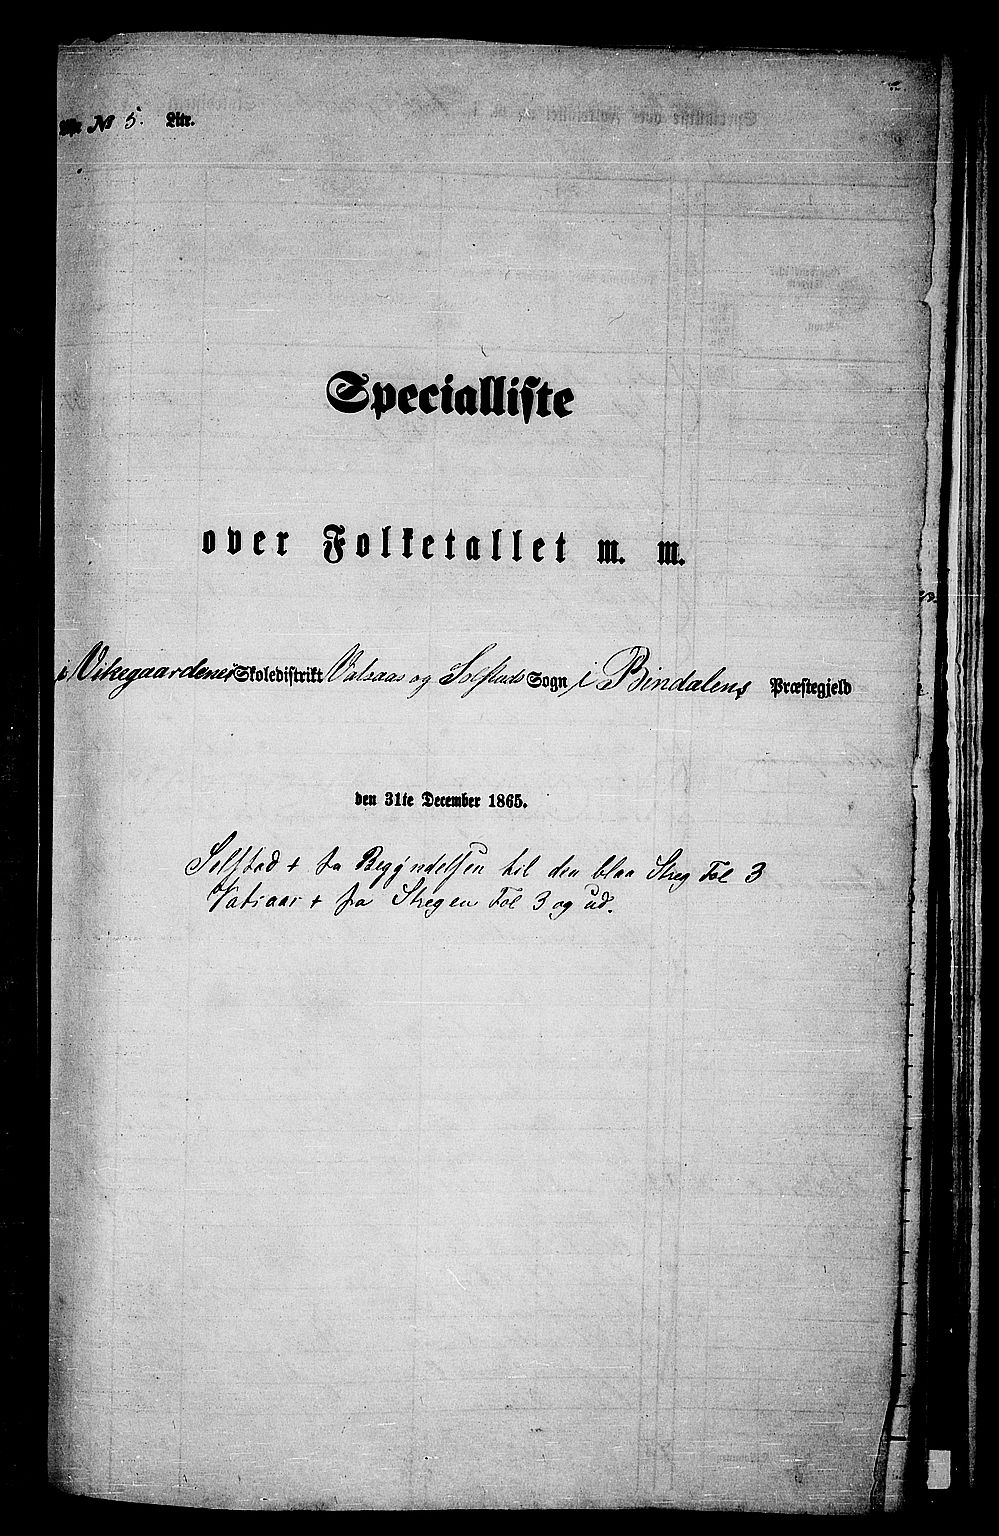 № 5. Litr.
Specialliste
over Folketallet m. m.
i Vikegaardenes Skoledistrikt Vatsaas og Solstads Sogn i Bindalens Præstegjeld
den 31te December 1865.
Solstad + fra Begyndelsen til den blaa Streg Fol 3
Vatsaas + fra Stregen Fol 3 og ud.